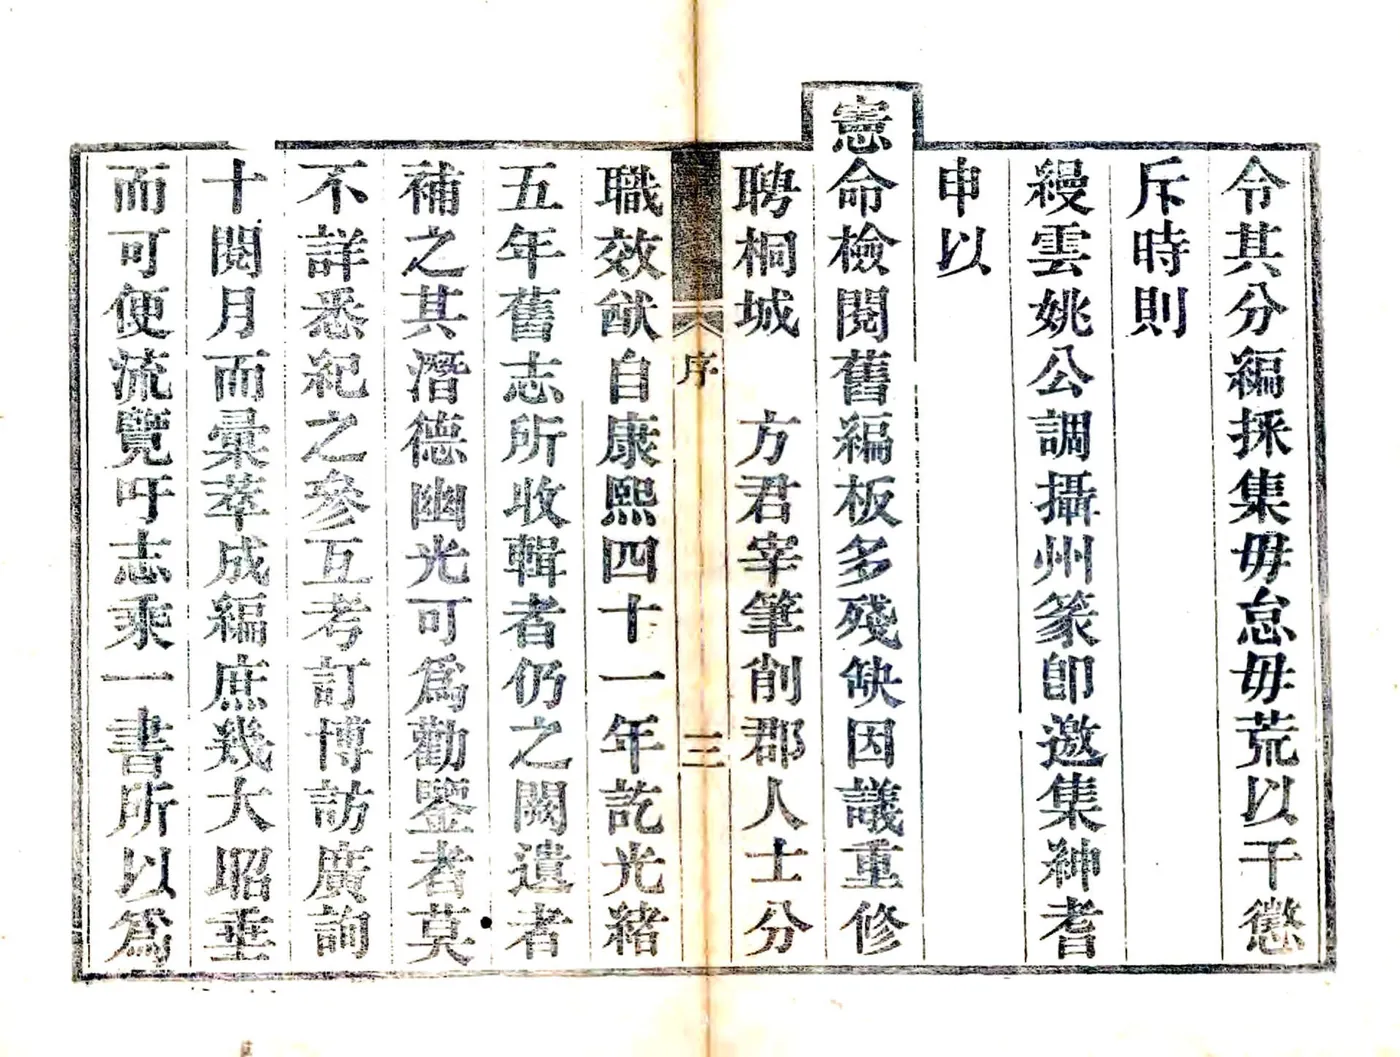 令其分編採集毋怠毋荒以干懲
斥時則
縵雲姚公調攝州篆卽邀集紳耆
申以
憲命檢閱舊編板多殘缺因議重修
聘桐城 方君宰筆削郡人士分
序 三
職效猷自康熙四十一年訖光緒
五年舊志所收輯者仍之闕遺者
補之其潛德幽光可爲勸鑒者莫
不詳悉紀之參互考訂博訪廣詢
十閱月而彙萃成編庶幾大昭垂
而可便流覽吁志乘一書所以爲